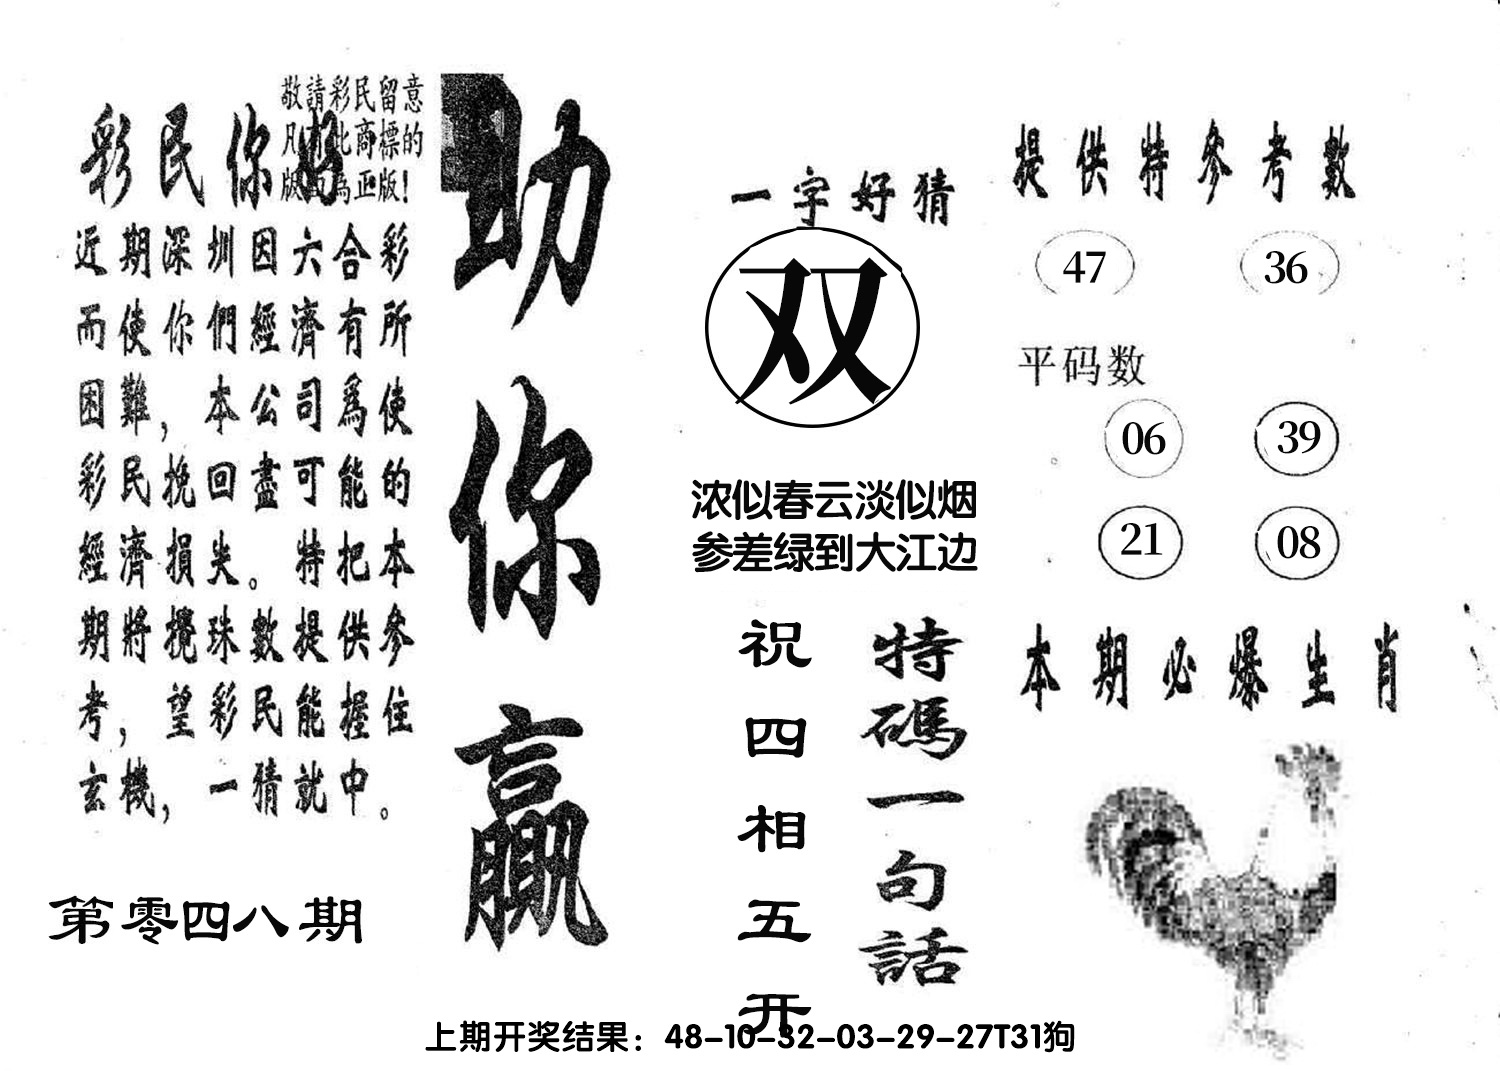 敬請彩民留意
凡有此商標的
版面為正版！
彩民你好
近期深圳因六合彩
而使你們經濟有所
困難，本公司爲使
彩民挽回盡可能的
經濟損失。特把本
期將攪珠數提供參
考，望彩民能握住
玄機，一猜就中。
第零四八期
助你贏
一字好猜
双
浓似春云淡似烟
参差绿到大江边
特碼一句話
祝四相五开
提供特參考數
47 36
平码数
06 39
21 08
本期必爆生肖
上期开奖结果：48-10-32-03-29-27T31狗